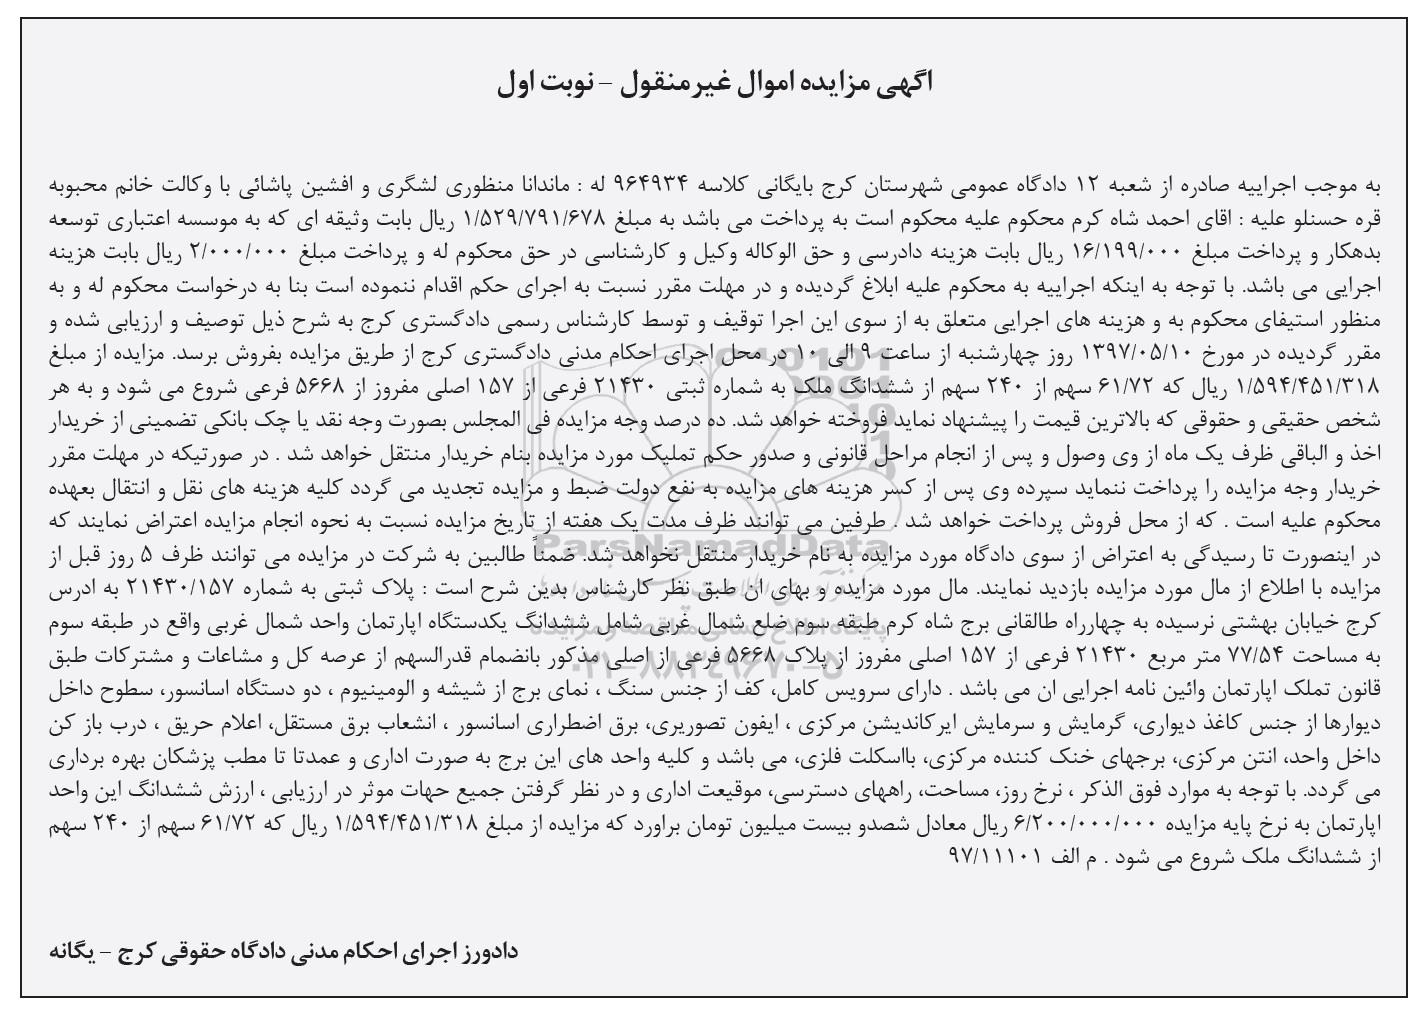 اگهی مزایده اموال غیرمنقول – نوبت اول
به موجب اجراییه صادره از شعبه ۱۲ دادگاه عمومی شهرستان کرج بایگانی کلاسه ۹۶۴۹۳۴ له : ماندانا منظوری لشگری و افشین پاشائی با وکالت خانم محبوبه
قره حسنلو علیه : اقای احمد شاه کرم محکوم علیه محکوم است به پرداخت می باشد به مبلغ ۱/۵۲۹/۷۹۱/۶۷۸ ریال بابت وثیقه ای که به موسسه اعتباری توسعه
بدهکار و پرداخت مبلغ ۱۶/۱۹۹/۰۰۰ ریال بابت هزینه دادرسی و حق الوکاله وکیل و کارشناسی در حق محکوم له و پرداخت مبلغ ۲/۰۰۰/۰۰۰ ریال بابت هزینه
اجرایی می باشد. با توجه به اینکه اجراییه به محکوم علیه ابلاغ گردیده و در مهلت مقرر نسبت به اجرای حکم اقدام ننموده است بنا به درخواست محکوم له و به
منظور استیفای محکوم به و هزینه های اجرایی متعلق به از سوی این اجرا توقیف و توسط کارشناس رسمی دادگستری کرج به شرح ذیل توصیف و ارزیابی شده و
مقرر گردیده در مورخ ۱۳۹۷/۰۵/۱۰ روز چهارشنبه از ساعت ۹ الی ۱۰ در محل اجرای احکام مدنی دادگستری کرج از طریق مزایده بفروش برسد. مزایده از مبلغ
۱/۵۹۴/۴۵۱/۳۱۸ ریال که ۶۱/۷۲ سهم از ۲۴۰ سهم از ششدانگ ملک به شماره ثبتی ۲۱۴۳۰ فرعی از ۱۵۷ اصلی مفروز از ۵۶۶۸ فرعی شروع می شود و به هر
شخص حقیقی و حقوقی که بالاترین قیمت را پیشنهاد نماید فروخته خواهد شد. ده درصد وجه مزایده فی المجلس بصورت وجه نقد یا چک بانکی تضمینی از خریدار
اخذ و الباقی ظرف یک ماه از وی وصول و پس از انجام مراحل قانونی و صدور حکم تملیک مورد مزایده بنام خریدار منتقل خواهد شد . در صورتیکه در مهلت مقرر
خریدار وجه مزایده را پرداخت ننماید سپرده وی پس از کسر هزینه های مزایده به نفع دولت ضبط و مزایده تجدید می گردد کلیه هزینه های نقل و انتقال بعهده
محکوم علیه است . که از محل فروش پرداخت خواهد شد . طرفین می توانند ظرف مدت یک هفته از تاریخ مزایده نسبت به نحوه انجام مزایده اعتراض نمایند که
در اینصورت تا رسیدگی به اعتراض از سوی دادگاه مورد مزایده به نام خریدار منتقل نخواهد شد. ضمناً طالبین به شرکت در مزایده می توانند ظرف ۵ روز قبل از
مزایده با اطلاع از مال مورد مزایده بازدید نمایند. مال مورد مزایده و بهای ان طبق نظر کارشناس بدین شرح است : پلاک ثبتی به شماره ۲۱۴۳۰/۱۵۷ به ادرس
کرج خیابان بهشتی نرسیده به چهارراه طالقانی برج شاه کرم طبقه سوم ضلع شمال غربی شامل ششدانگ یکدستگاه اپارتمان واحد شمال غربی واقع در طبقه سوم
به مساحت ۷۷/۵۴ متر مربع ۲۱۴۳۰ فرعی از ۱۵۷ اصلی مفروز از پلاک ۵۶۶۸ فرعی از اصلی مذکور بانضمام قدرالسهم از عرصه کل و مشاعات و مشترکات طبق
قانون تملک اپارتمان وائین نامه اجرایی ان می باشد . دارای سرویس کامل، کف از جنس سنگ ، نمای برج از شیشه و الومینیوم ، دو دستگاه اسانسور، سطوح داخل
دیوارها از جنس کاغذ دیواری، گرمایش و سرمایش ایرکاندیشن مرکزی ، ایفون تصوریری، برق اضطراری اسانسور ، انشعاب برق مستقل، اعلام حریق ، درب باز کن
داخل واحد، انتن مرکزی، برجهای خنک کننده مرکزی، بااسکلت فلزی، می باشد و کلیه واحد های این برج به صورت اداری و عمدتا تا مطب پزشکان بهره برداری
می گردد. با توجه به موارد فوق الذکر ، نرخ روز، مساحت، راههای دسترسی، موقیعت اداری و در نظر گرفتن جمیع حهات موثر در ارزیابی ، ارزش ششدانگ این واحد
اپارتمان به نرخ پایه مزایده ۶/۲۰۰/۰۰۰/۰۰۰ ریال معادل شصدو بیست میلیون تومان براورد که مزایده از مبلغ ۱/۵۹۴/۴۵۱/۳۱۸ ریال که ۶۱/۷۲ سهم از ۲۴۰ سهم
از ششدانگ ملک شروع می شود . م الف ۹۷/۱۱۱۰۱
دادورز اجرای احکام مدنی دادگاه حقوقی کرج – یگانه
ParsNamadData
پایگاه اطلاع رسانی مناقصه و مزایده
۰۲۱-۸۸۳۴۹۶۷۰-۵